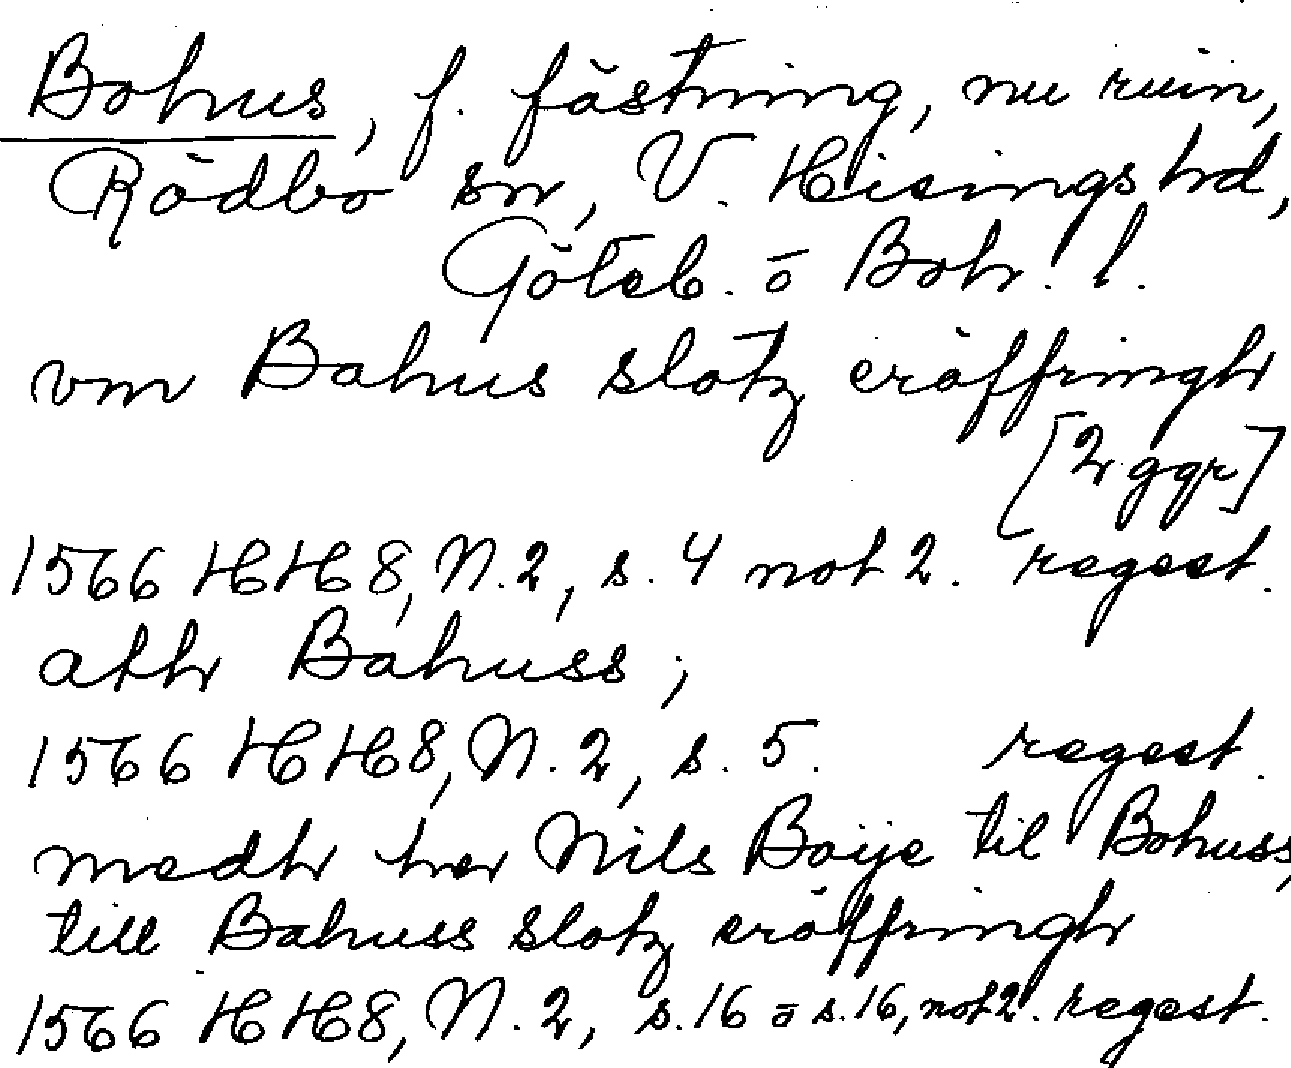 Bohus, f. fästning, nu ruin,
Rödbo sn, V. Hisings hd,
Göteb. o Boh. l.
vm Bahus slotz eröffringh
[2 ggr]
1566 HH8, N. 2, s. 4 not 2. regest.
ath Bahuss;
1566 HH8, N. 2, s. 5. regest.
medh her Nils Boije til Bohuss,
till Bahuss slotz eröffringh
1566 HH8, N. 2, s. 16 o s. 16, not 2. regest.